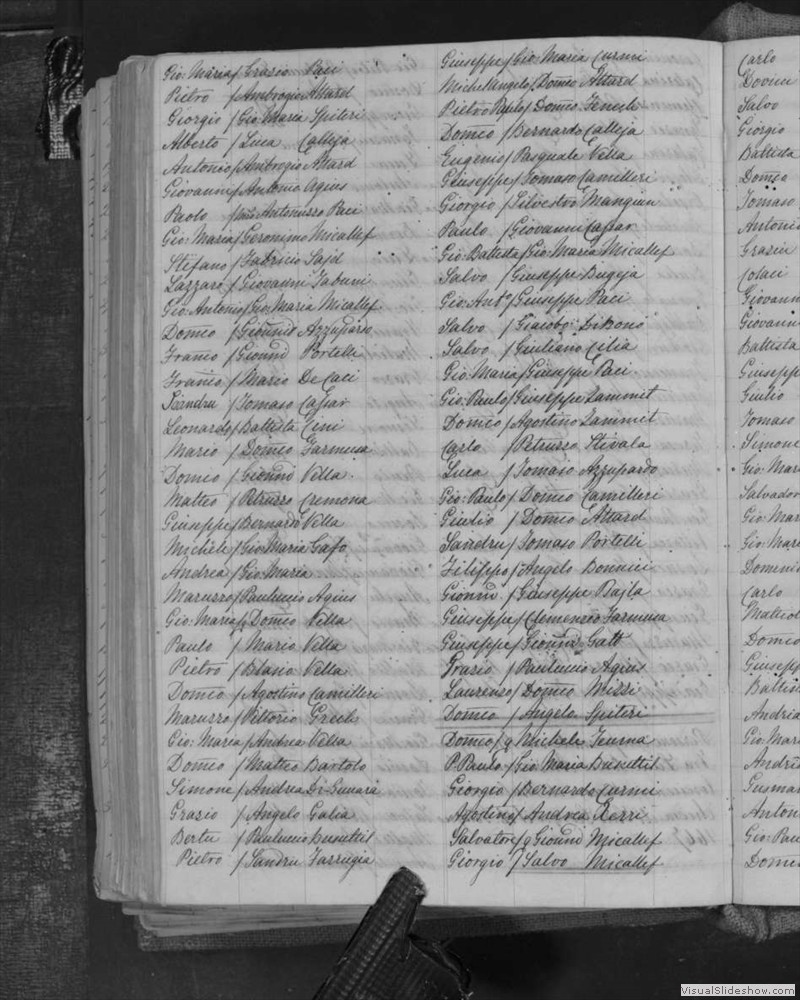 Gio: Maria / Grazio Paci
Pietro / Ambrogio Attard
Giorgio / Gio: Maria Spiteri
Alberto / Luca Calleja
Antonio / Ambrogio Attard
Giovanni / Antonio Agius
Paolo / Antonuzzo Paci
Gio: Maria / Geronimo Micallef
Stefano / Fabricio Sajd
Lazzaro / Giovanni Zabuni
Gio: Antonio / Gio: Maria Micallef
Domco / Giounni Azzupardo
Franco / Gionni Portelli
Franco / Mario De Caci
Sandru / Tomaso Cassar
Leonardo / Battista Cini
Mario / Domco Farmusa
Domco / Gionni Vella
Matteo / Petruzzo Cremona
Giuseppe / Bernardo Vella
Michele / Gio: Maria Gafo
Andrea / Gio: Maria
Maruzzo / Paulucio Agius
Gio: Maria / q Domco Vella
Paulo / Mario Vella
Pietro / Blasio Vella
Domco / Agostino Camilleri
Maruzzo / Vittorio Grech
Gio: Maria / Andrea Vella
Domco / Matteo Bartolo
Simone / Andrea Di Guuara
Grazio / Angelo Galia
Bertu / Paulucio Busuttil
Pietro / Sandru Farrugia
Giuseppe / Gio: Maria Curmi
Michelangelo / Domco Attard
Pietro Paulo / Domco Tenesh
Domco / Bernardo Calleja
Eugenio / Pasquale Vella
Giuseppe / Tomaso Camilleri
Giorgio / Silvestro Mangiun
Paulo / Giovanni Cassar
Gio: Battista / Gio: Maria Micallef
Salvo / Giuseppe Bugeja
Gio: Anto / Giuseppe Paci
Salvo / Giacobo Di Bono
Salvo / Giuliano Cilia
Gio: Maria / Giuseppe Paci
Gio: Paulo / Giuseppe Zammit
Domco / Agostino Zammit
Carlo / Petruzzo Stivala
Luca / Tomaso Azzupardo
Gio: Paulo / Domco Camilleri
Giulio / Domco Attard
Sandru / Tomaso Portelli
Filippo / Angelo Bonnici
Gionni / Giuseppe Bajla
Giuseppe / Clemenzio Farmusa
Giuseppe / Gionni Gatt
Grazio / Paulucio Agius
Laurenzo / Domco Mizzi
Domco / Angelo Spiteri
Domco / q Michele Teuma
P. Paulo / Gio Maria Busuttil
Giorgio / Bernardo Curmi
Agostino / Andrea Xerri
Salvatore / q Gionni Micallef
Giorgio / Salvo Micallef
Carlo
Salvo
Giorgio
Battista
Domco
Tomaso
Antonio
Grazio
Colaci
Giovann
Giovann
Battista
Giuseppe
Giulio
Tomaso
Simone
Gio: Mari
Salvador
Gio: Mar
Gio: Mar
Domeni
Carlo
Matteo
Domco
Giuseppe
Battis
Andria
Gio: Mar
Andria
Gusman
Anton
Gio: Pau
Domco
VisualSlideshow.com